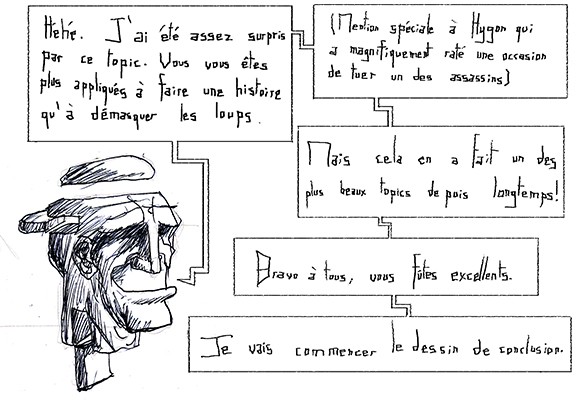 Héhé. J'ai été assez surpris
par ce topic. Vous vous êtes
plus appliqués à faire une histoire
qu'à démasquer les loups.
(Mention spéciale à Hygon qui
a magnifiquement raté une occasion
de tuer un des assassins)
Mais cela en a fait un des
plus beaux topics de pois longtemps!
Bravo à tous, vous fûtes excellents.
Je vais commencer le dessin de conclusion.